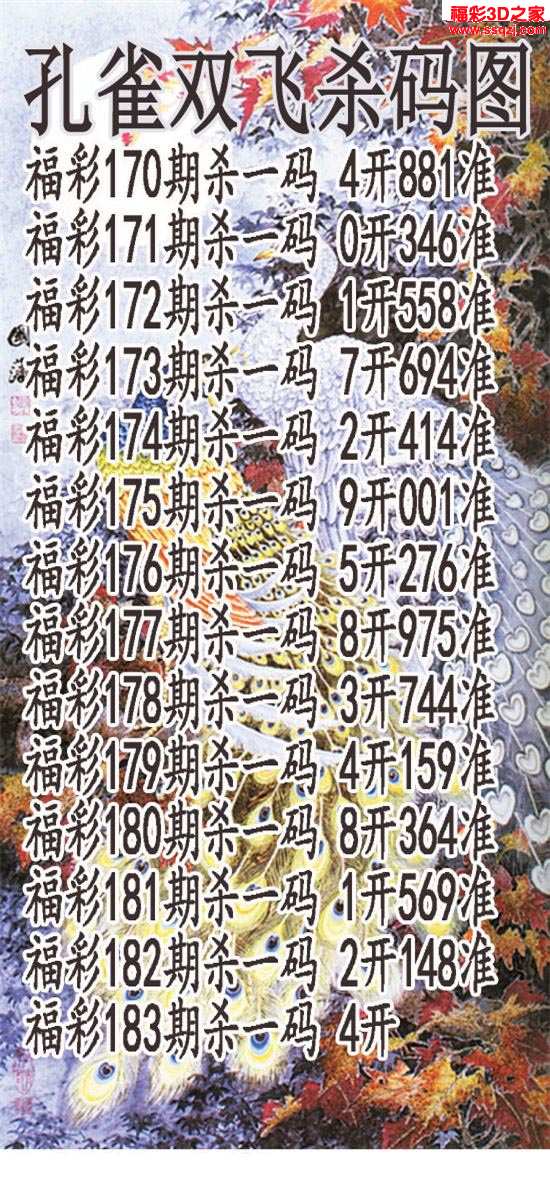 福彩3D之家
www.ssqzj.com
孔雀双飞杀码图
福彩170期杀一码 4开881准
福彩171期杀一码 0开346准
福彩172期杀一码 1开558准
福彩173期杀一码 7开694准
福彩174期杀一码 2开414准
福彩175期杀一码 9开001准
福彩176期杀一码 5开276准
福彩177期杀一码 8开975准
福彩178期杀一码 3开744准
福彩179期杀一码 4开159准
福彩180期杀一码 8开364准
福彩181期杀一码 1开569准
福彩182期杀一码 2开148准
福彩183期杀一码 4开